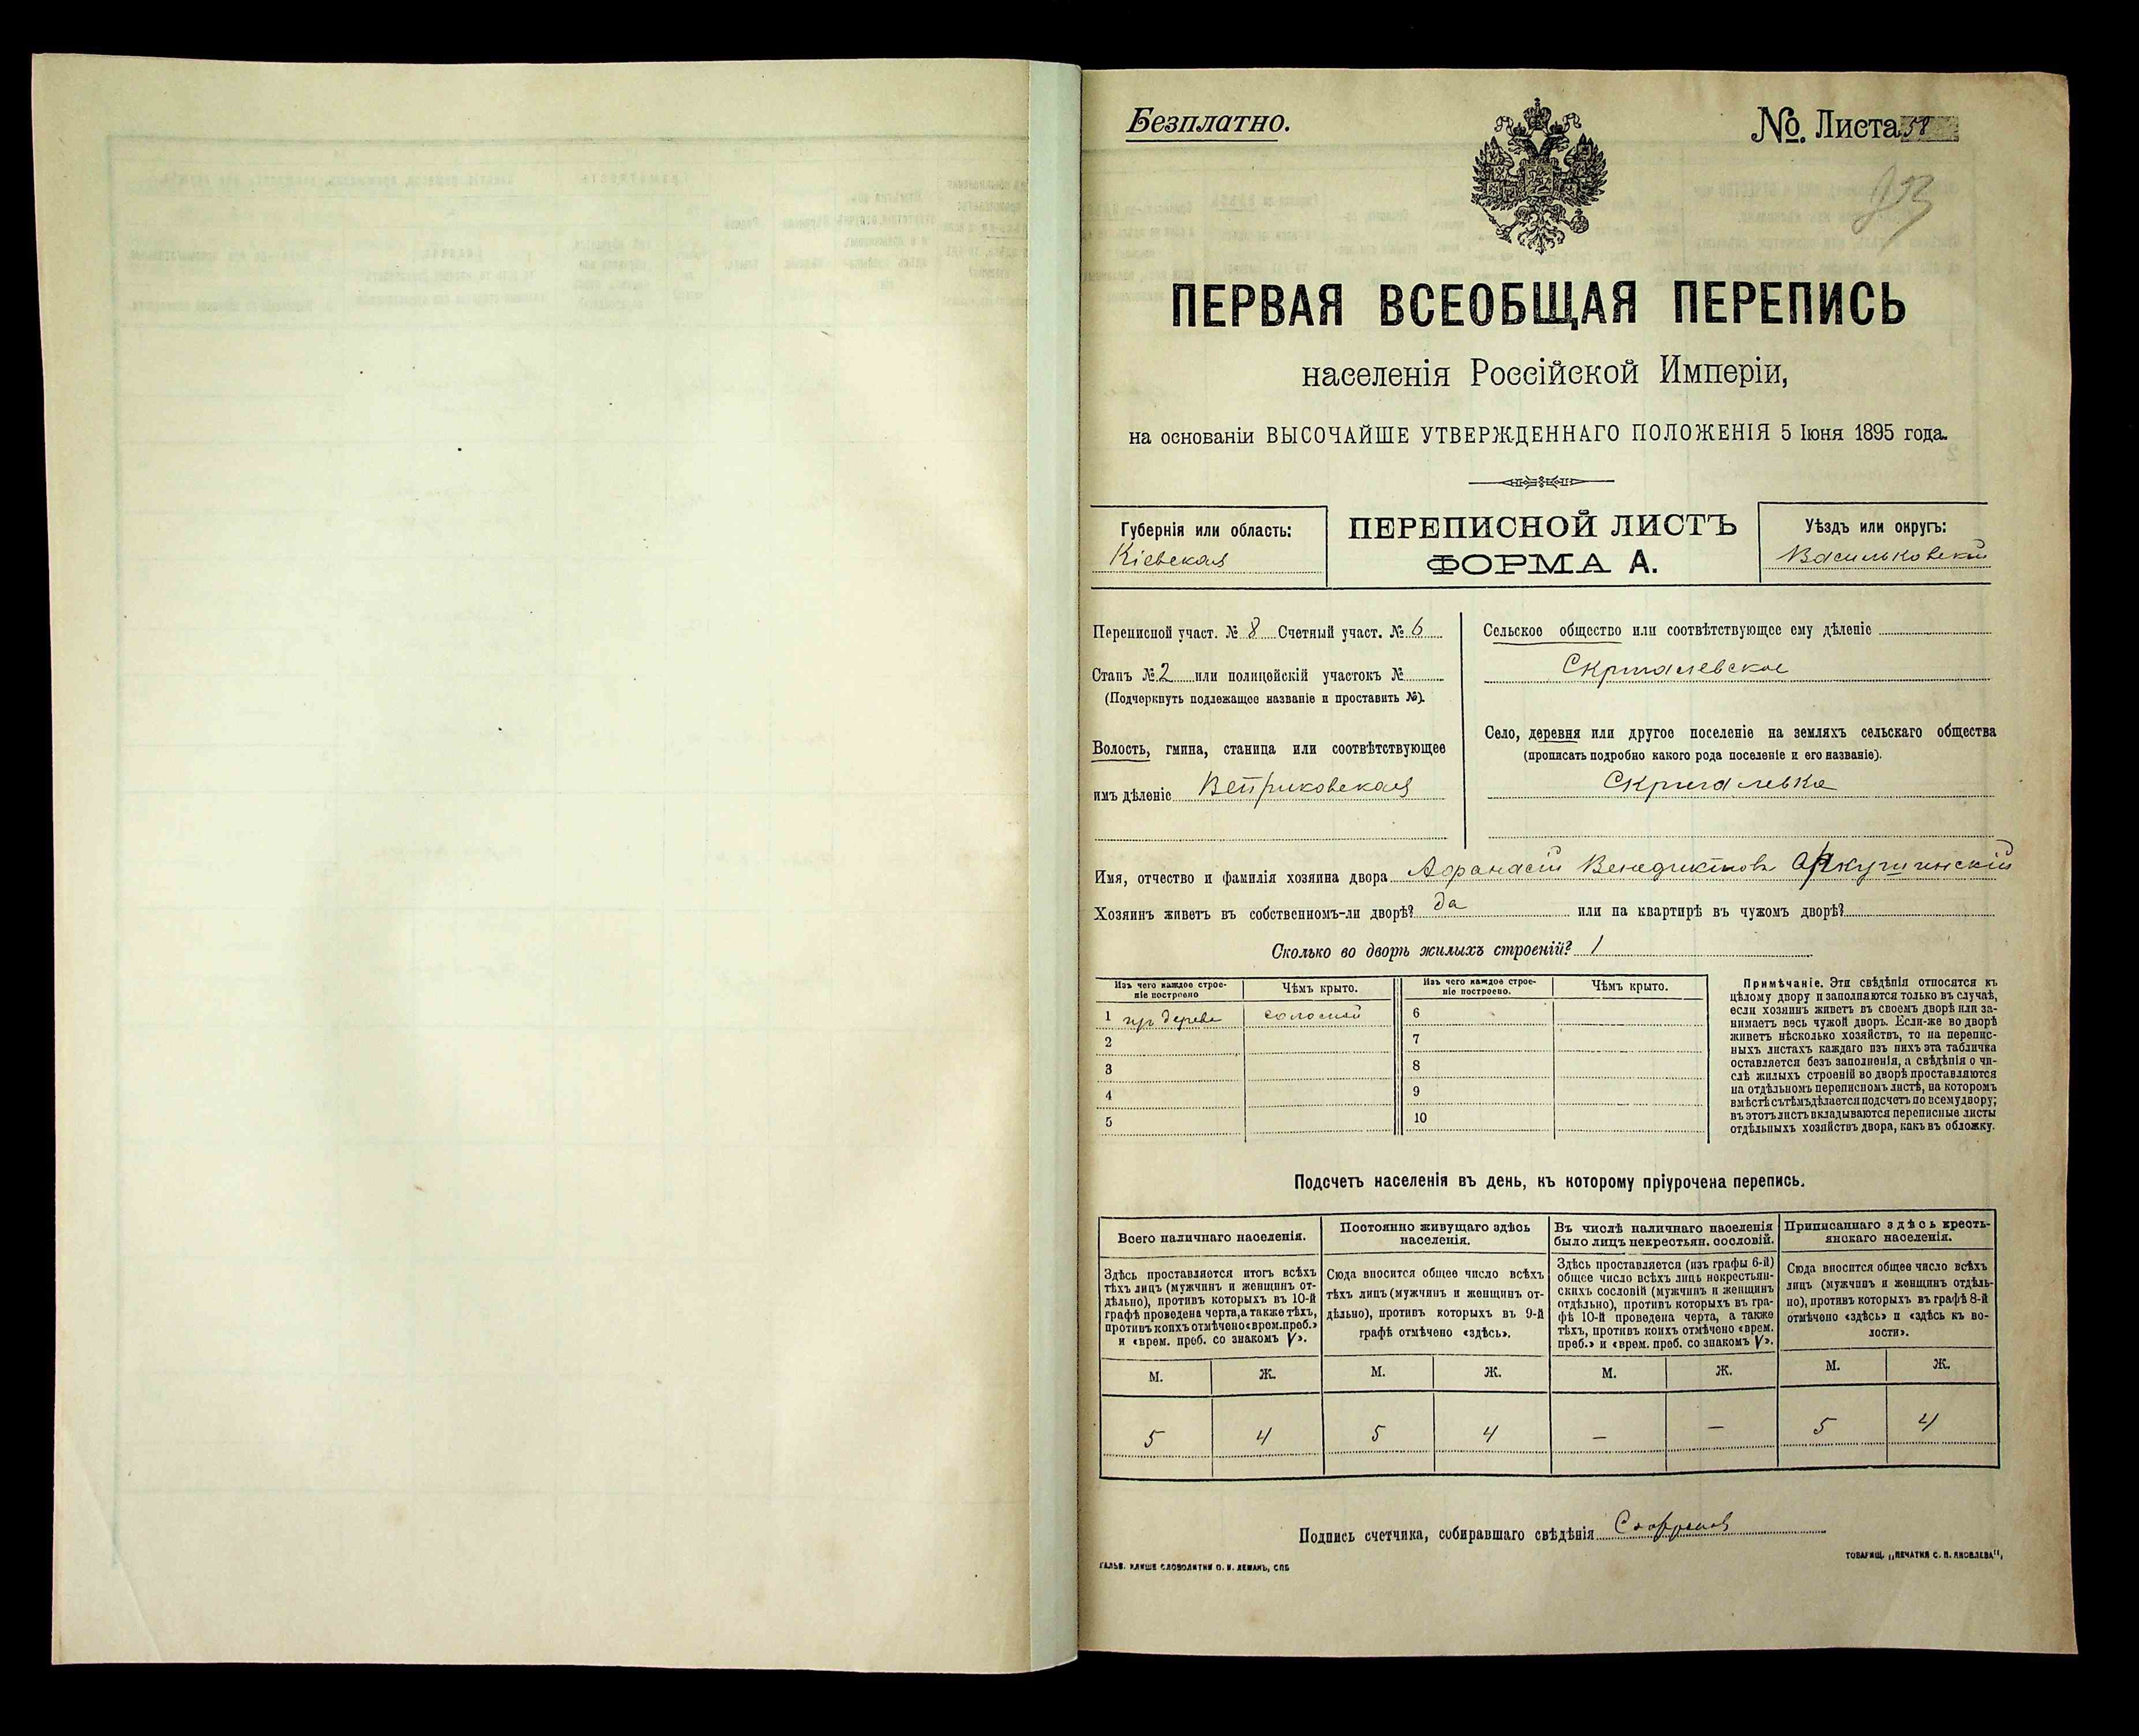 Безплатно.
№ Листа 58
ПЕРВАЯ ВСЕОБЩАЯ ПЕРЕПИСЬ
населенія Россійской Имперіи,
на основаніи ВЫСОЧАЙШЕ УТВЕРЖДЕННАГО ПОЛОЖЕНІЯ 5 Іюня 1895 года.
Губернія или область:
Кіевская
ПЕРЕПИСНОЙ ЛИСТЪ
ФОРМА А.
Уѣздъ или округъ:
Васильковскій
Переписной участ. № 8 Счетный участ. № 6
Станъ № 2 или полицейскій участокъ №
(Подчеркнуть подлежащее названіе и проставить №).
Волость, гмина, станица или соотвѣтствующее
имъ дѣленіе Ветриковская
Сельское общество или соотвѣтствующее ему дѣленіе
Скригалевское
Село, деревня или другое поселеніе на земляхъ сельскаго общества
(прописать подробно какого рода поселеніе и его названіе).
Скригалевка
Имя, отчество и фамилія хозяина двора Афанасій Венедиктовъ Аркушинскій
Хозяинъ живетъ въ собственномъ-ли дворѣ? да или на квартирѣ въ чужомъ дворѣ?
Сколько во дворѣ жилыхъ строеній? 1
Изъ чего каждое строе-
ніе построено
Чѣмъ крыто.
Изъ чего каждое строе-
ніе построено.
Чѣмъ крыто.
1 изъ дерева соломой 6
2 7
3 8
4 9
5 10
Примѣчаніе. Эти свѣдѣнія относятся къ
цѣлому двору и заполняются только въ случаѣ,
если хозяинъ живетъ въ своемъ дворѣ или за-
нимаетъ весь чужой дворъ. Если-же во дворѣ
живетъ нѣсколько хозяйствъ, то на перепис-
ныхъ листахъ каждаго изъ нихъ эта табличка
оставляется безъ заполненія, а свѣдѣнія о чи-
слѣ жилыхъ строеній во дворѣ проставляются
на отдѣльномъ переписномъ листѣ, на которомъ
вмѣстѣ съ тѣмъ дѣлается подсчетъ по всему двору;
въ этотъ листъ вкладываются переписные листы
отдѣльныхъ хозяйствъ двора, какъ въ обложку.
Подсчетъ населенія въ день, къ которому пріурочена перепись.
Всего наличнаго населенія.
Здѣсь проставляется итогъ всѣхъ
тѣхъ лицъ (мужчинъ и женщинъ от-
дѣльно), противъ которыхъ въ 10-й
графѣ проведена черта, а также тѣхъ,
противъ коихъ отмѣчено «врем. преб.»
и «врем. преб. со знакомъ V».
Постоянно живущаго здѣсь
населенія.
Сюда вносится общее число всѣхъ
тѣхъ лицъ (мужчинъ и женщинъ от-
дѣльно), противъ которыхъ въ 9-й
графѣ отмѣчено «здѣсь».
Въ числѣ наличнаго населенія
было лицъ некрестьян. сословій.
Здѣсь проставляется (изъ графы 6-й)
общее число всѣхъ лицъ некрестьян-
скихъ сословій (мужчинъ и женщинъ
отдѣльно), противъ которыхъ въ гра-
фѣ 10-й проведена черта, а также
тѣхъ, противъ коихъ отмѣчено «врем.
преб.» и «врем. преб. со знакомъ V».
Приписаннаго здѣсь кресть-
янскаго населенія.
Сюда вносится общее число всѣхъ
лицъ (мужчинъ и женщинъ отдѣль-
но), противъ которыхъ въ графѣ 8-й
отмѣчено «здѣсь» и «здѣсь къ во-
лости».
М. Ж. М. Ж. М. Ж. М. Ж.
5 4 5 4 — — 5 4
Подпись счетчика, собиравшаго свѣдѣнія
ГАЛЬВ. КЛИШЕ СЛОВОЛИТНИ О. И. ЛЕМАНЪ, СПБ
ТОВАРИЩ. „ПЕЧАТНЯ С. П. ЯКОВЛЕВА“,